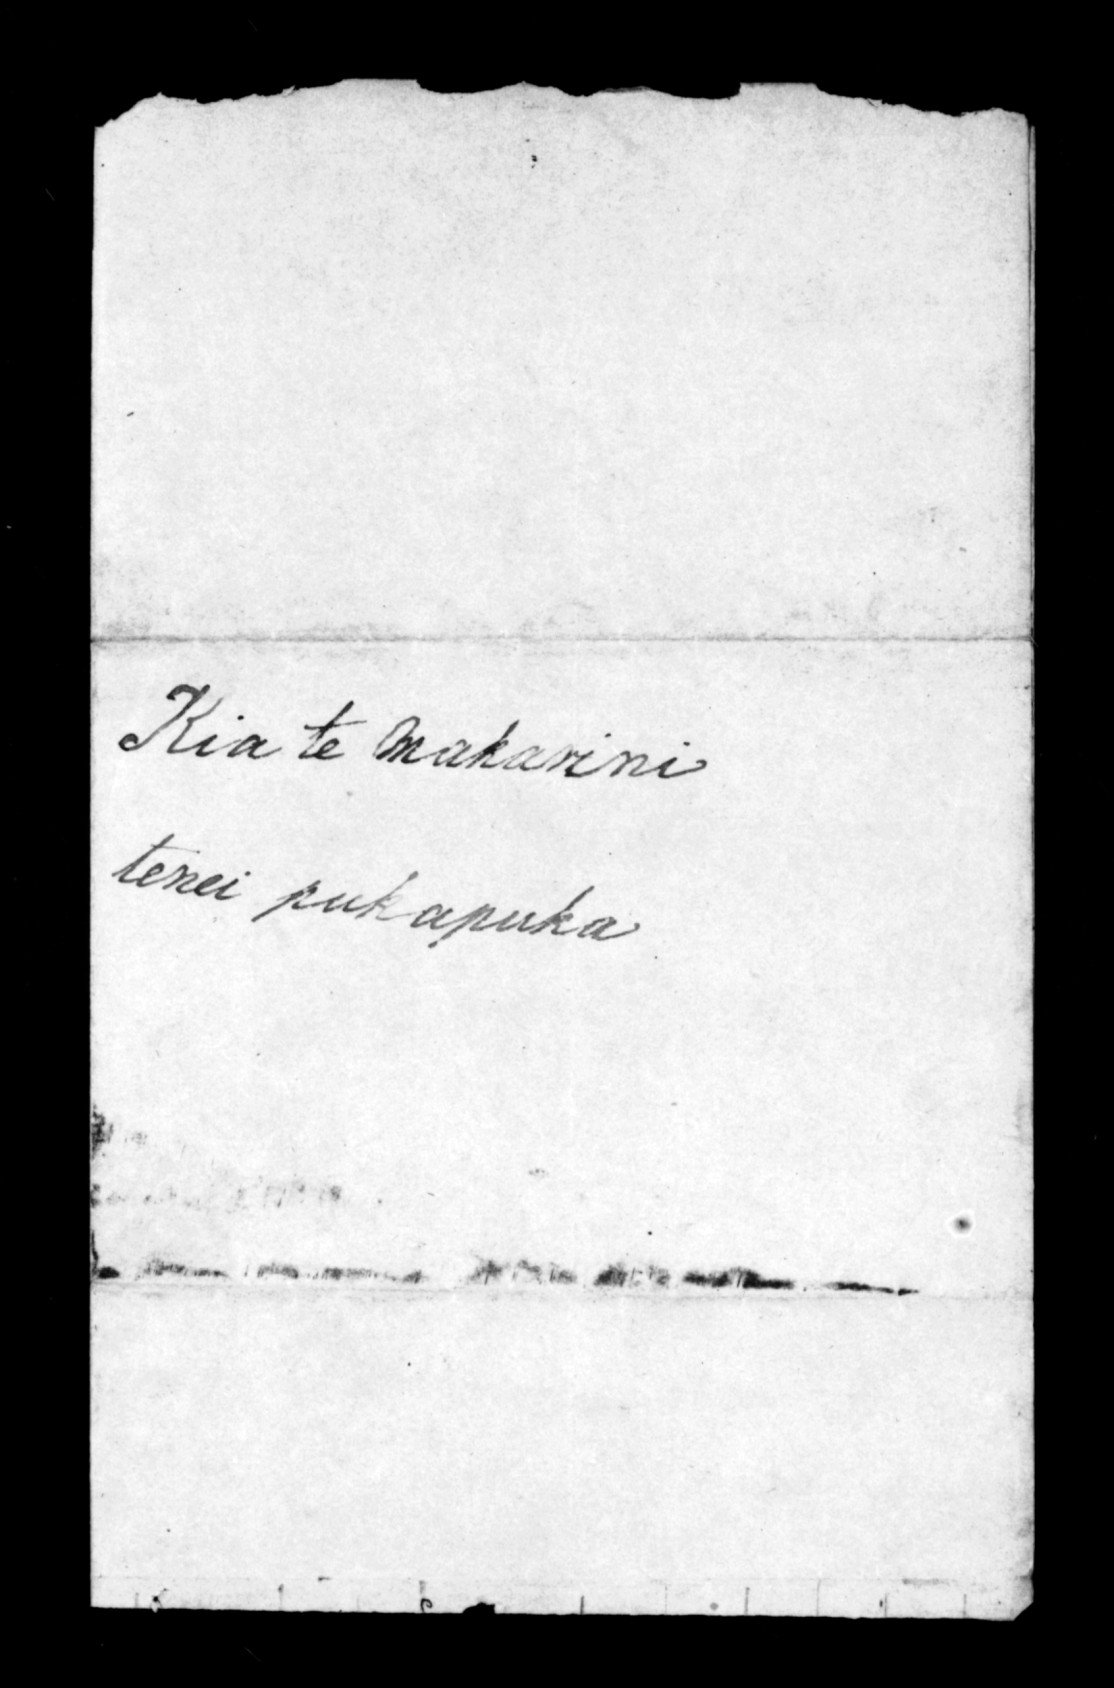 Kia te Makarini
tenei pukapuka